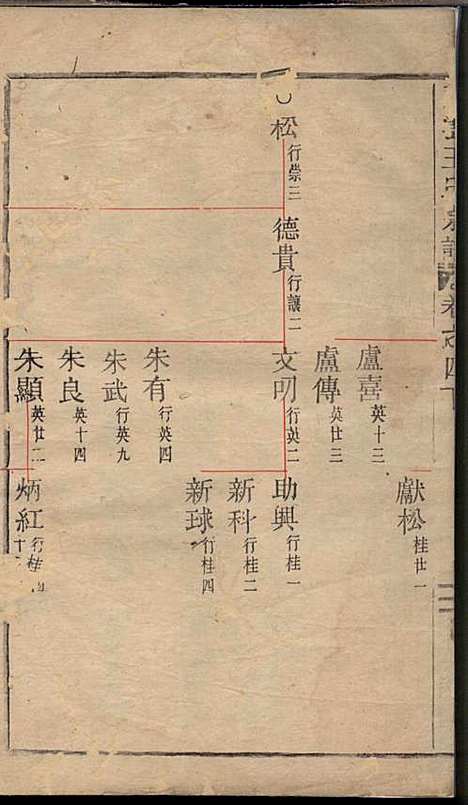 松 行崇三
德貴 行讓二
盧喜 英十三
盧傳 英廿三
文明 行英二
朱有 行英四
朱武 行英九
朱良 英十四
朱顯 英廿二
獻松 桂廿一
助興 行桂一
新科 行桂二
新球 行桂四
炳紅 行桂